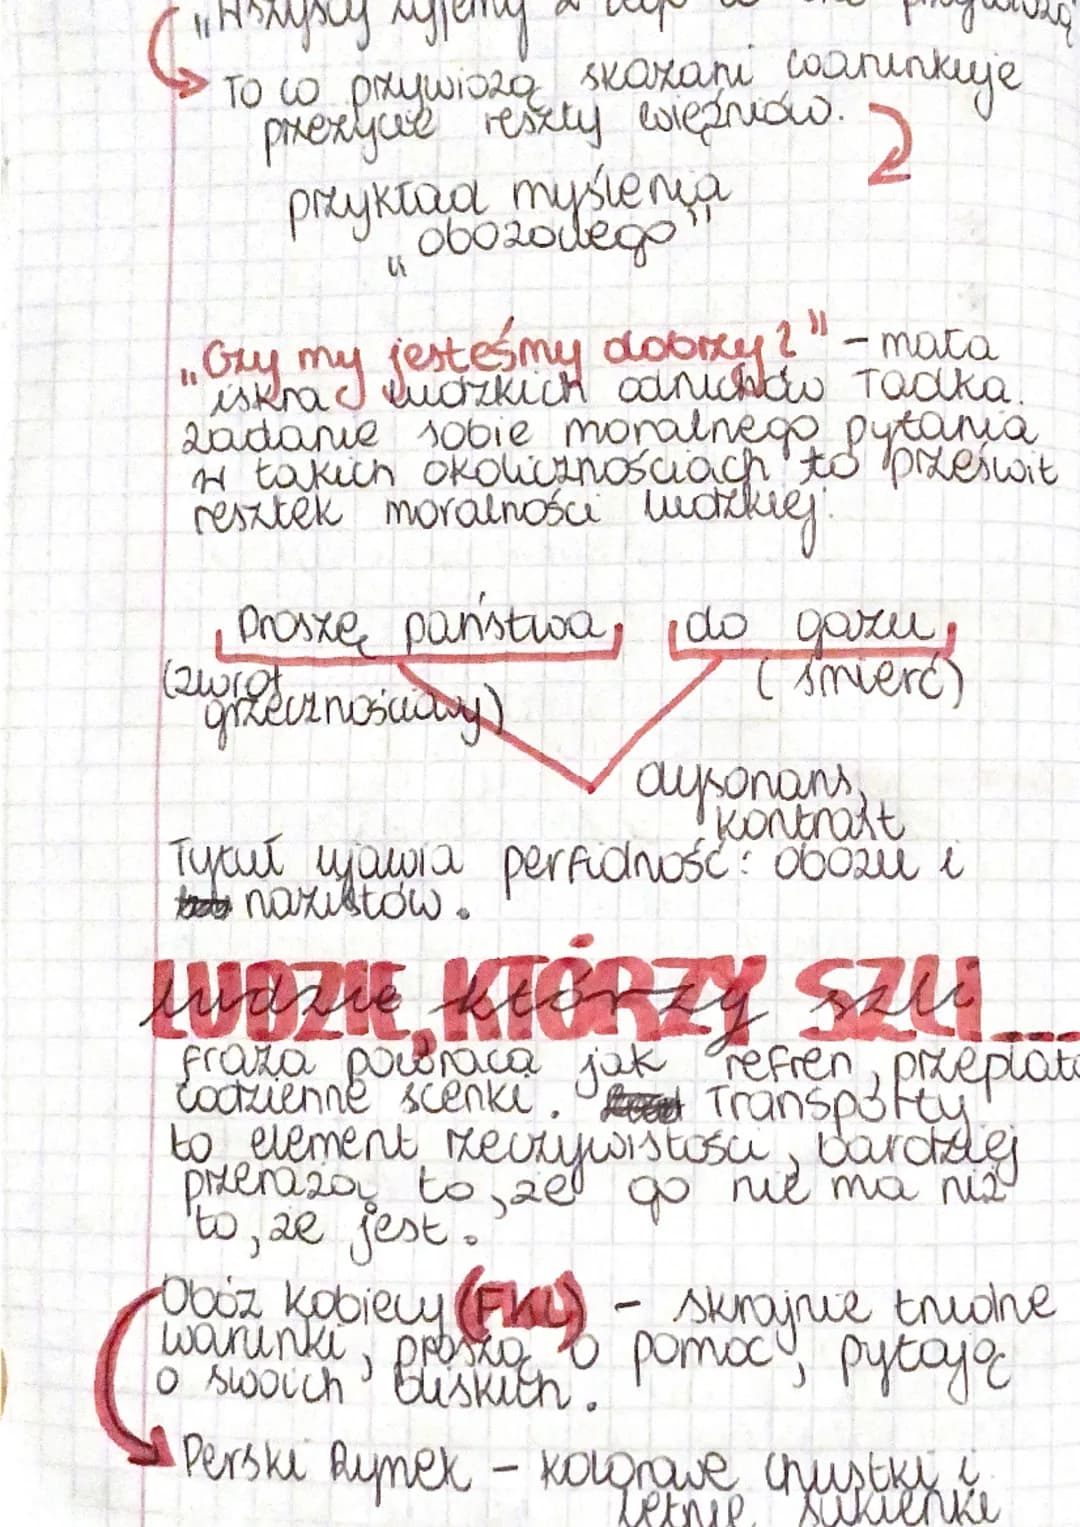 „Wszyscy żyjemy z tego co oni przywiozą"
To co przywiozą skazani warunkuje
przeżycie reszty więźniów.
przykład myślenia
„obozowego"
„Czy my jesteśmy dobrzy?" - mała
iskra ludzkich odruchów Tadka.
zadanie sobie moralnego pytania
w takich okolicznościach to prześwit
resztek moralności ludzkiej.
Proszę państwa, do gazu,
(zwrot grzecznościowy) (śmierć)
dysonans,
kontrast
Tytuł ujawia perfidność: obozu i
nazistów.
LUDZIE, KTÓRZY SZLI...
ludzie którzy szli
fraza powraca jak refren, przeplata
codzienne scenki. Transporty
to element rzeczywistości, bardziej
przeraża to, że go nie ma niż
to, że jest.
Obóz kobiecy (FKL) - skrajnie trudne
warunki, proszą o pomoc, pytają
o swoich bliskich.
Perski Rynek - kolorowe chustki i
letnie sukienki